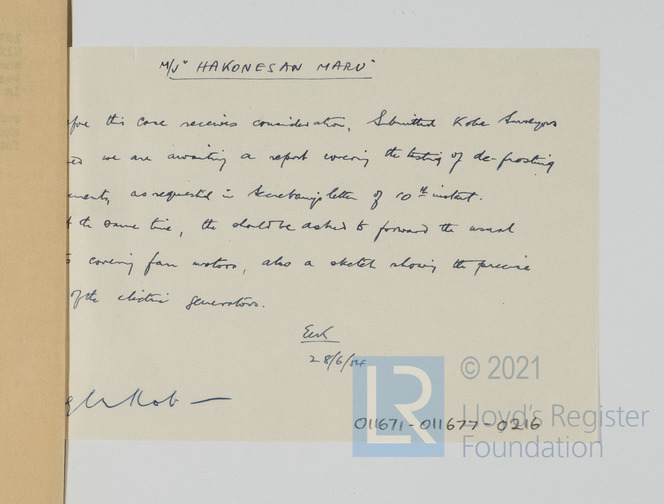 M/V "HAKONESAN MARU"
this case receives consideration. Submitted Kobe Surveyors
we are awaiting a report covering the testing of de-frosting
as requested in Secretary's letter of 10th instant.
the same time, the should be asked to forward the usual
covering fan motors, also a sketch showing the precise
of the electric generators.
28/6/54
LR
© 2021
Lloyd's Register
Foundation
011671-011677-0216